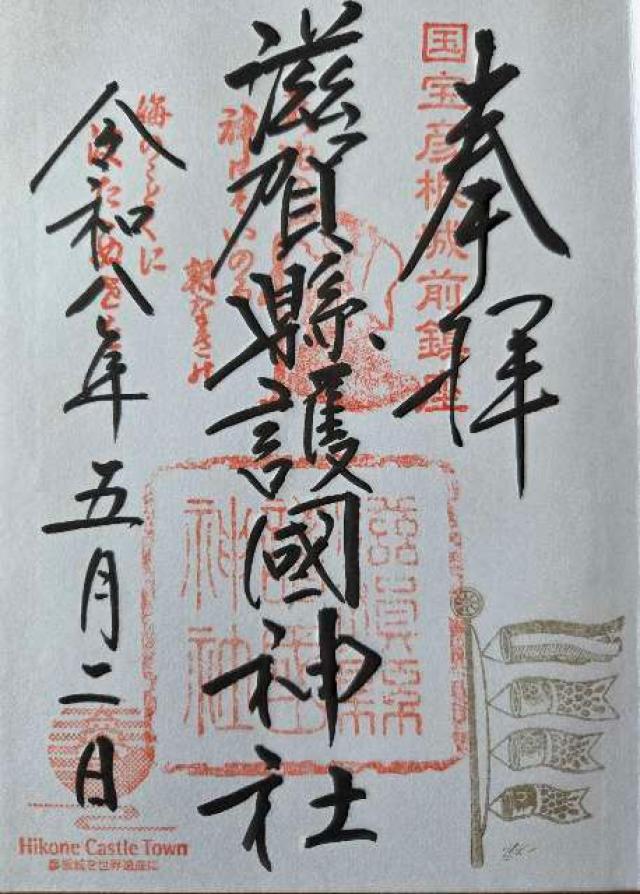 奉拝
国宝彦根城前鎮座
滋賀縣護國神社
滋賀縣護國神社
令和八年五月二日
Hikone Castle Town
彦根城を世界遺産に